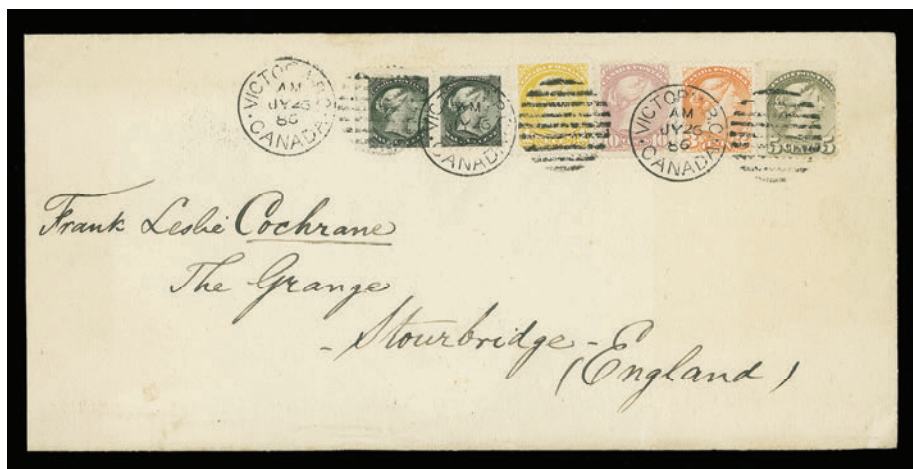 VICTORIA B.C.
AM
JY 26
86
CANADA
AM
JY 26
CANADA
VICTORIA B.C.
AM
JY 26
86
CANADA
10 10
5 5
Frank Leslie Cochrane
The Grange
- Stourbridge -
(England)